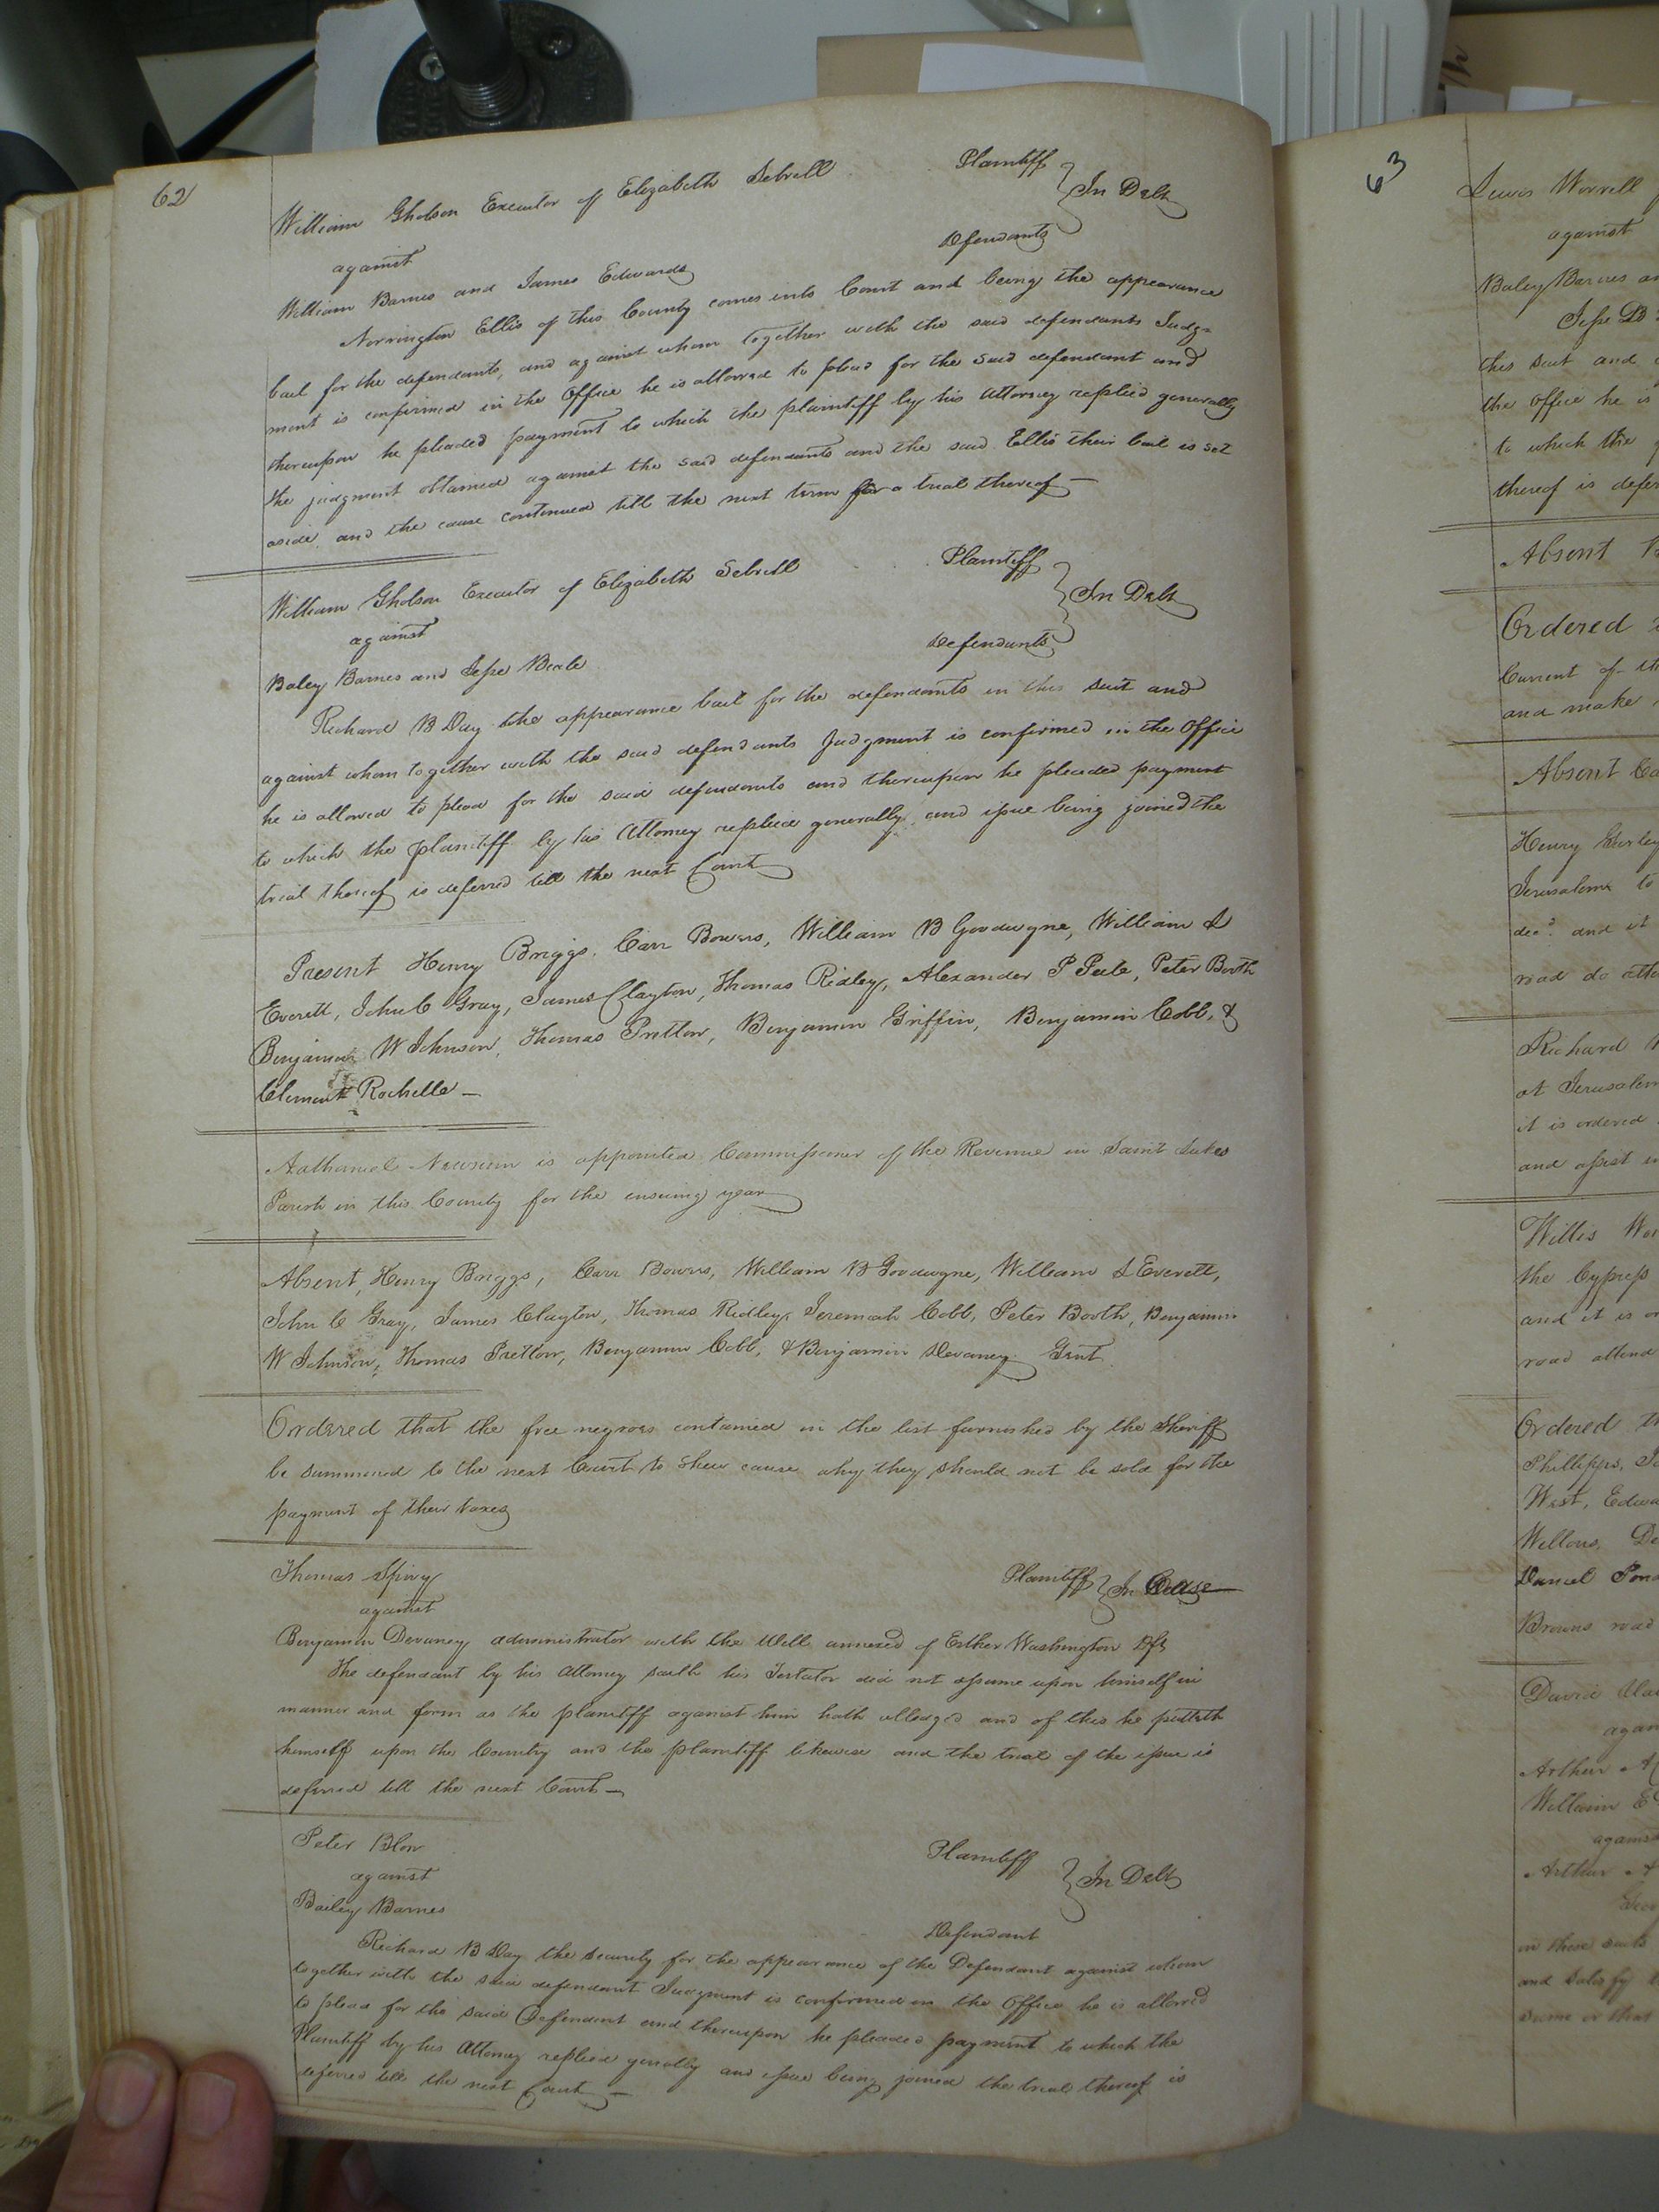 62
William Gholson Executor of Elizabeth Sebrell Plaintiff
In Debt
against
William Barnes and James Edwards Defendants
Norrington Ellis of this County comes into Court and being the appearance
bail for the defendants, and against whom together with the said defendants Judg-
ment is confirmed in the Office he is allowed to plead for the said defendant and
thereupon he pleaded payment to which the plaintiff by his Attorney replied generally
the judgment obtained against the said defendants and the said Ellis their bail is set
aside and the cause continued till the next term for a trial thereof —
William Gholson Executor of Elizabeth Sebrell Plaintiff
In Debt
against
Baley Barnes and Jesse Beale Defendants
Richard B Day the appearance bail for the defendants in this suit and
against whom together with the said defendants Judgment is confirmed in the Office
he is allowed to plead for the said defendants and thereupon he pleaded payment
to which the plaintiff by his Attorney replied generally and issue being joined the
trial thereof is deferred till the next Court
Present Henry Briggs, Carr Bowers, William B Goodwyne, William D
Everett, John C Gray, James Clayton, Thomas Ridley, Alexander P Peete, Peter Booth
Benjamin W Johnson, Thomas Pretlow, Benjamin Griffin, Benjamin Cobb, &
Clement Rochelle —
Nathaniel Newsum is appointed Commissioner of the Revenue in Saint Lukes
Parish in this County for the ensuing year
Absent, Henry Briggs, Carr Bowers, William B Goodwyne, William D Everett,
John C Gray, James Clayton, Thomas Ridley, Jeremiah Cobb, Peter Booth, Benjamin
W Johnson, Thomas Pretlow, Benjamin Cobb, & Benjamin Devaney Gent
Ordered that the free negroes contained in the list furnished by the Sheriff
be summoned to the next Court to shew cause why they should not be sold for the
payment of their taxes
Thomas Spivy Plaintiff In Case
against
Benjamin Devaney administrator with the Will annexed of Esther Washington Dft
The defendant by his Attorney saith his Testator did not assume upon himself in
manner and form as the plaintiff against him hath alledged and of this he putteth
himself upon the Country and the plaintiff likewise and the trial of the issue is
deferred till the next Court —
Peter Blow Plaintiff
In Debt
against
Bailey Barnes Defendant
Richard B Day the security for the appearance of the Defendant against whom
together with the said defendant Judgment is confirmed in the Office he is allowed
to plead for the said Defendant and thereupon he pleaded payment to which the
Plaintiff by his Attorney replied generally and issue being joined the trial thereof is
deferred till the next Court —
63
Lewis Worrell
against
Baley Barnes an
Jesse B
this suit and
the office he is
to which the
thereof is defer
Absent
Ordered
Current of th
and make
Absent Ca
Henry Gurley
Jerusalem to
decd. and it
road do atte
Richard
at Jerusalem
it is ordered
and assist in
Willis
the Cypress
and it is or
road attend
Ordered th
Phillips, Jo
West, Edwa
Wellons, De
Daniel Pond
Browns road
David
again
Arthur
William E
against
Arthur A
Geor
in these suits
and satisfy
same or that